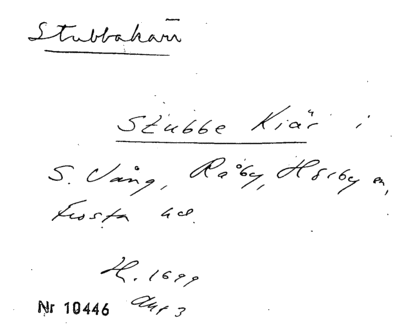 Stubbakärr
Stubbe Kiär i
S. Vång, Råby, Hörby sn,
Frosta hd.
H. 1699
Akt 3
Nr 10446